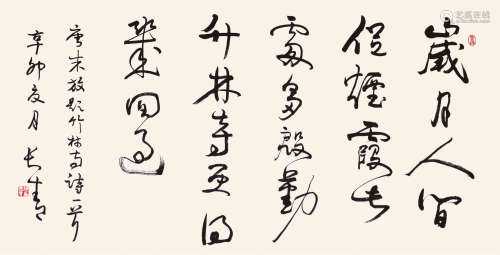 歲月人間
促煙霞此
處多殷勤
竹林寺更得
幾回過
唐朱放題竹林寺詩一首
辛卯夏月長青